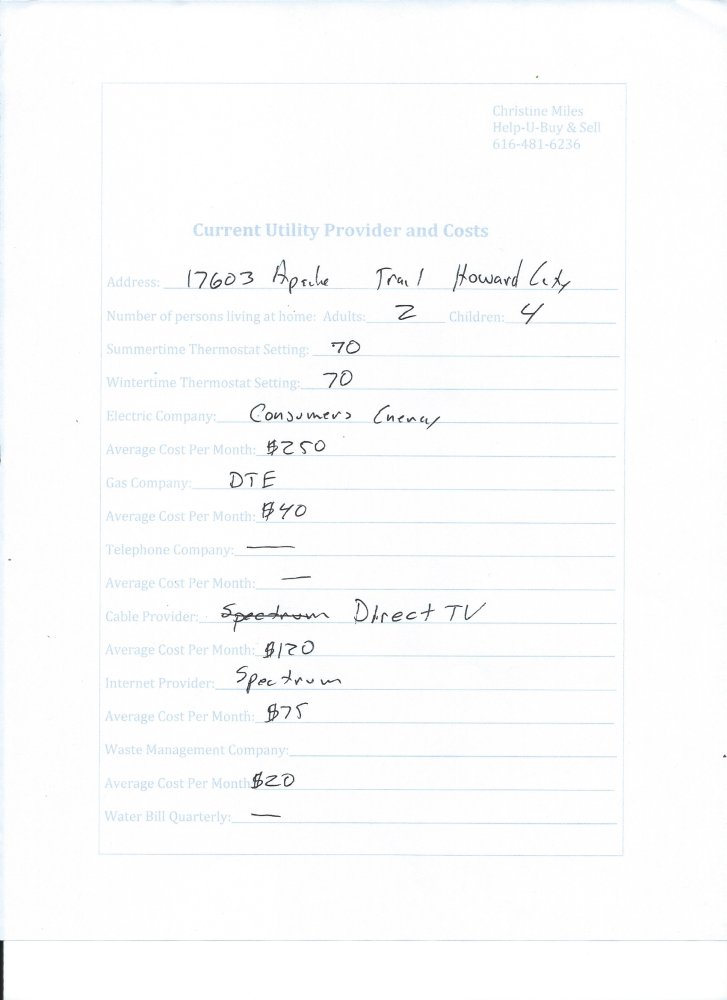 Christine Miles
Help-U-Buy & Sell
616-481-6236
Current Utility Provider and Costs
Address: 17603 Apache Trail Howard City
Number of persons living at home: Adults: 2 Children: 4
Summertime Thermostat Setting: 70
Wintertime Thermostat Setting: 70
Electric Company: Consumers Energy
Average Cost Per Month: $250
Gas Company: DTE
Average Cost Per Month: $40
Telephone Company: —
Average Cost Per Month: —
Cable Provider: Spectrum Direct TV
Average Cost Per Month: $120
Internet Provider: Spectrum
Average Cost Per Month: $75
Waste Management Company:
Average Cost Per Month $20
Water Bill Quarterly: —